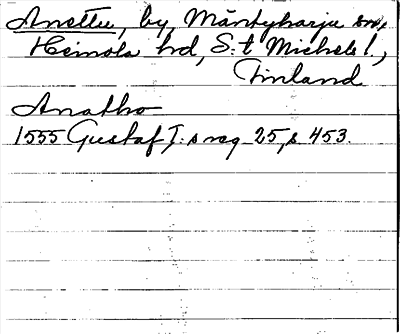 Anettu, by, Mäntyharju sn,
Heinola hd, S:t Michels l.,
Finland
Anatho
1555 Gustaf I:s reg 25, s 453.